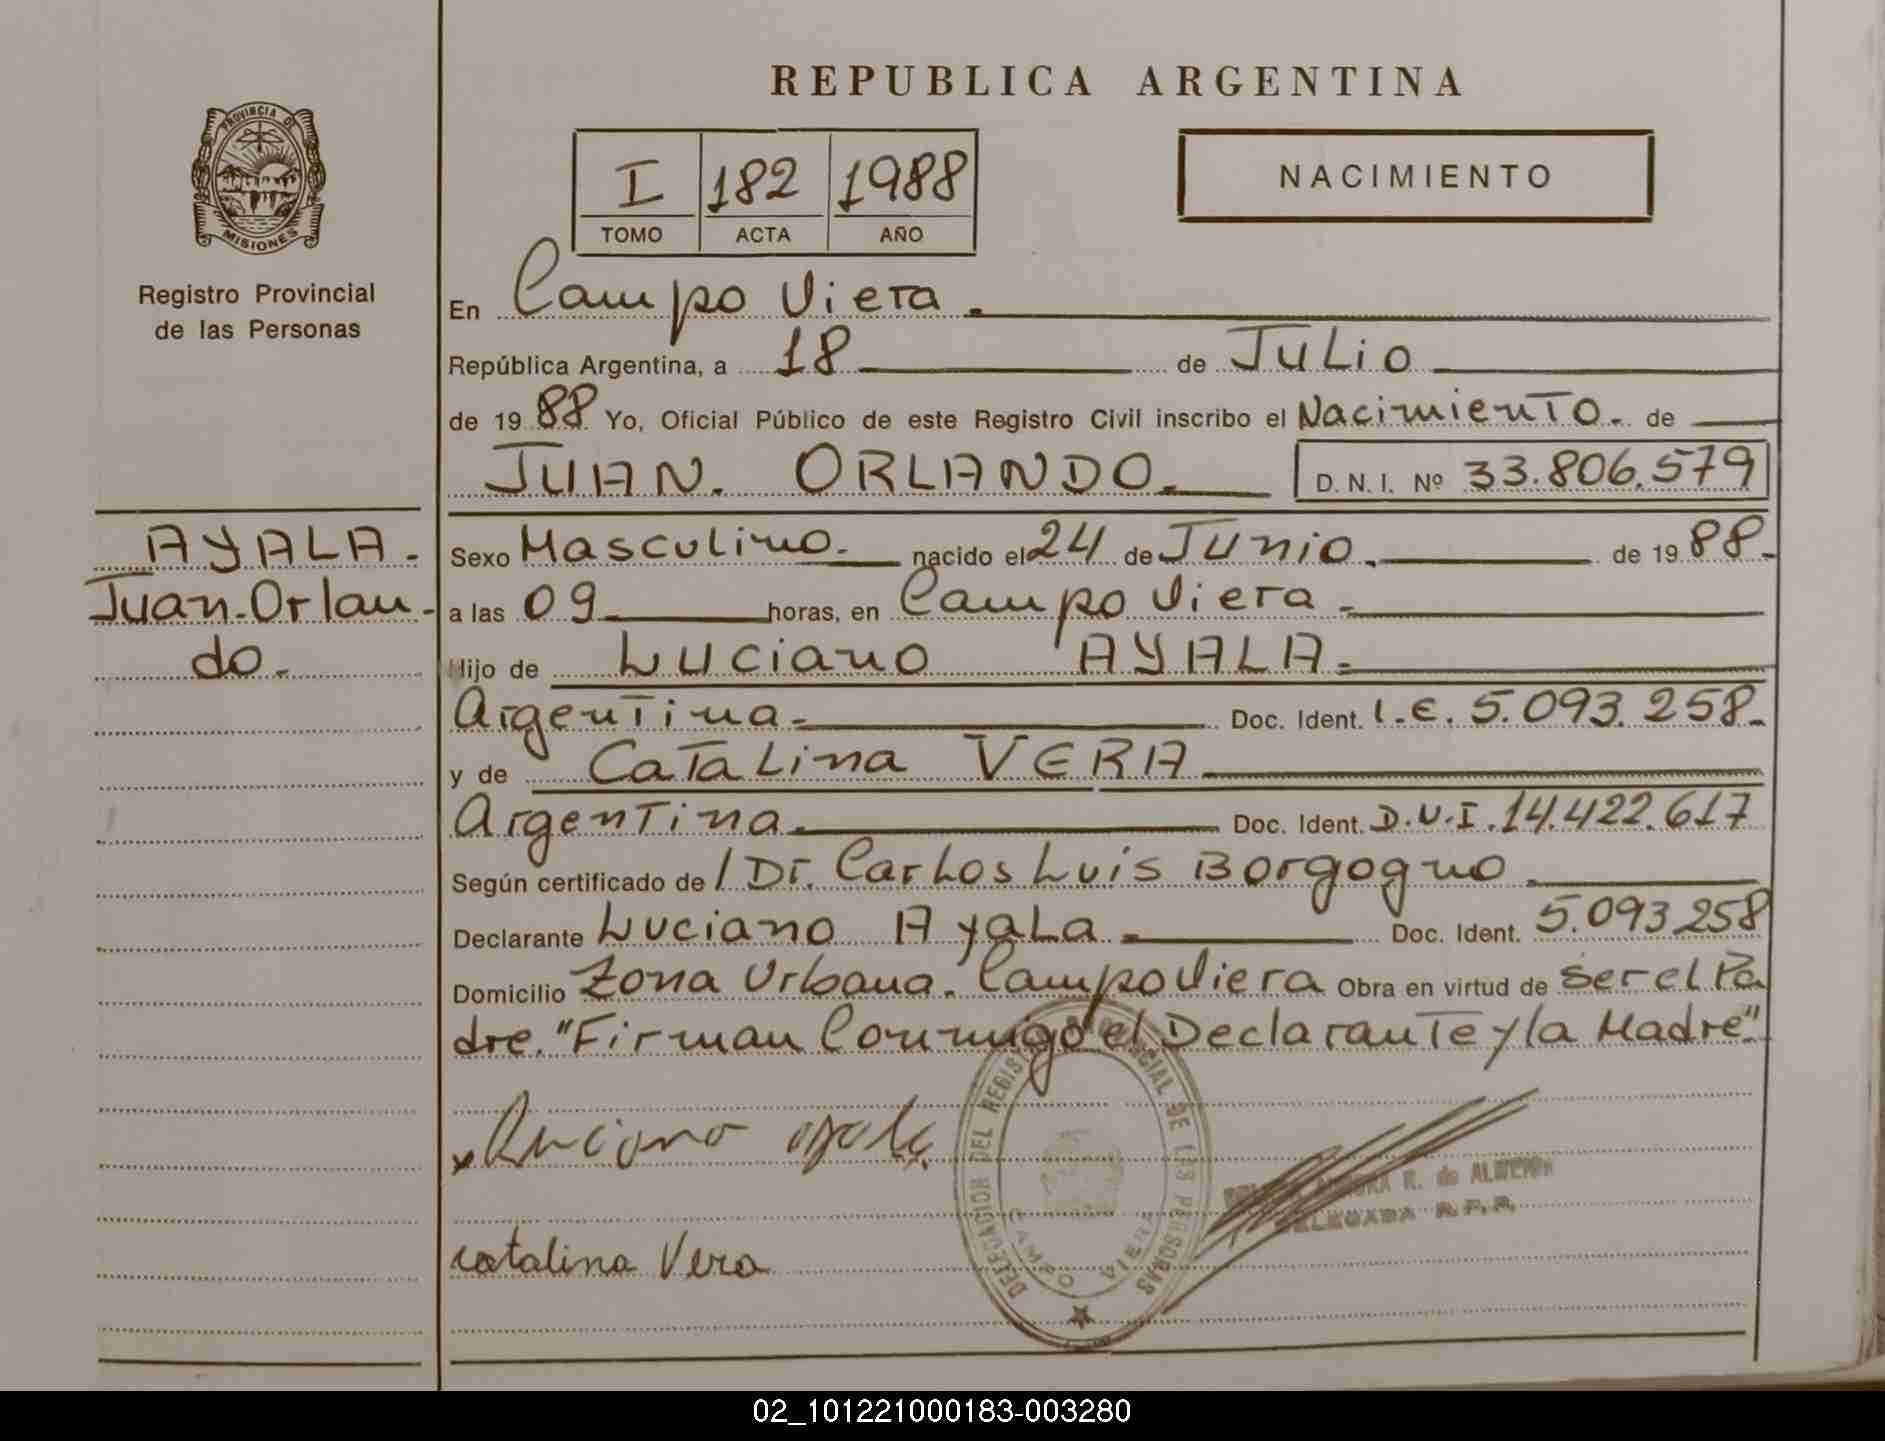 REPUBLICA ARGENTINA
PROVINCIA DE
MISIONES
Registro Provincial
de las Personas
I 182 1988
TOMO ACTA AÑO
NACIMIENTO
En Campo Viera.
República Argentina, a 18 de Julio
de 1988 Yo, Oficial Público de este Registro Civil inscribo el Nacimiento. de
JUAN. ORLANDO. D. N. I. Nº 33.806.579
AYALA.
Juan-Orlan-
do.
Sexo Masculino. nacido el 24 de Junio. de 1988.
a las 09 horas, en Campo Viera.
Hijo de Luciano AYALA.
Argentina. Doc. Ident. L.E. 5.093.258.
y de Catalina VERA
Argentina. Doc. Ident. D.N.I. 14.422.617
Según certificado de / Dr. Carlos Luis Borgogno
Declarante Luciano Ayala. Doc. Ident. 5.093.258
Domicilio Zona Urbana. Campo Viera Obra en virtud de ser el Pa
dre. "Firman Conmigo el Declarante y la Madre".
x Luciano ayala
DELEGACION DEL REGISTRO PROVINCIAL DE LAS PERSONAS
CAMPO VIERA
R. de
DELEGADA R.P.P.
catalina Vera
02_101221000183-003280